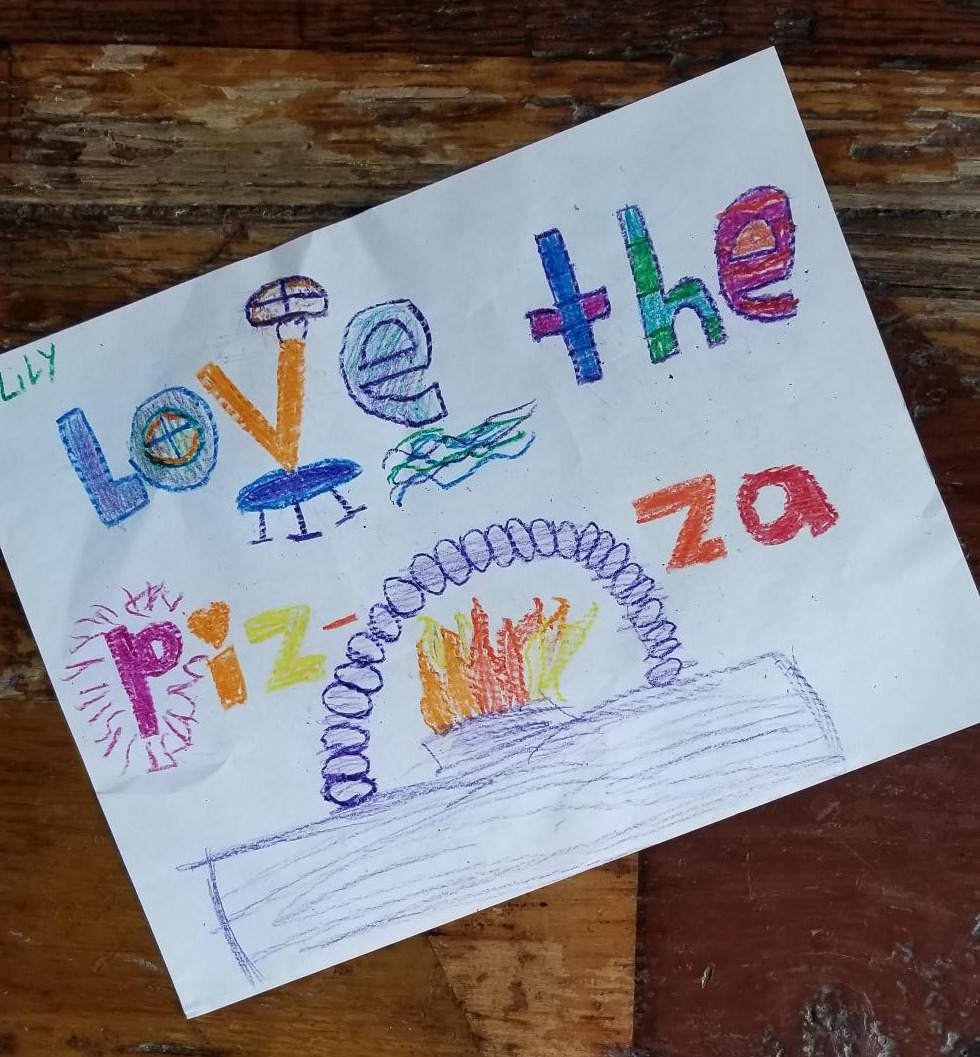 LiLY
Love the
piz-za